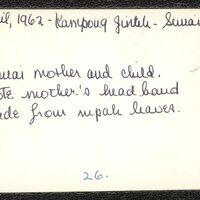 il, 1962 - Kampong Jintch - Semai
mai mother and child.
ote mother's head band
de from nipah leaves.
26.